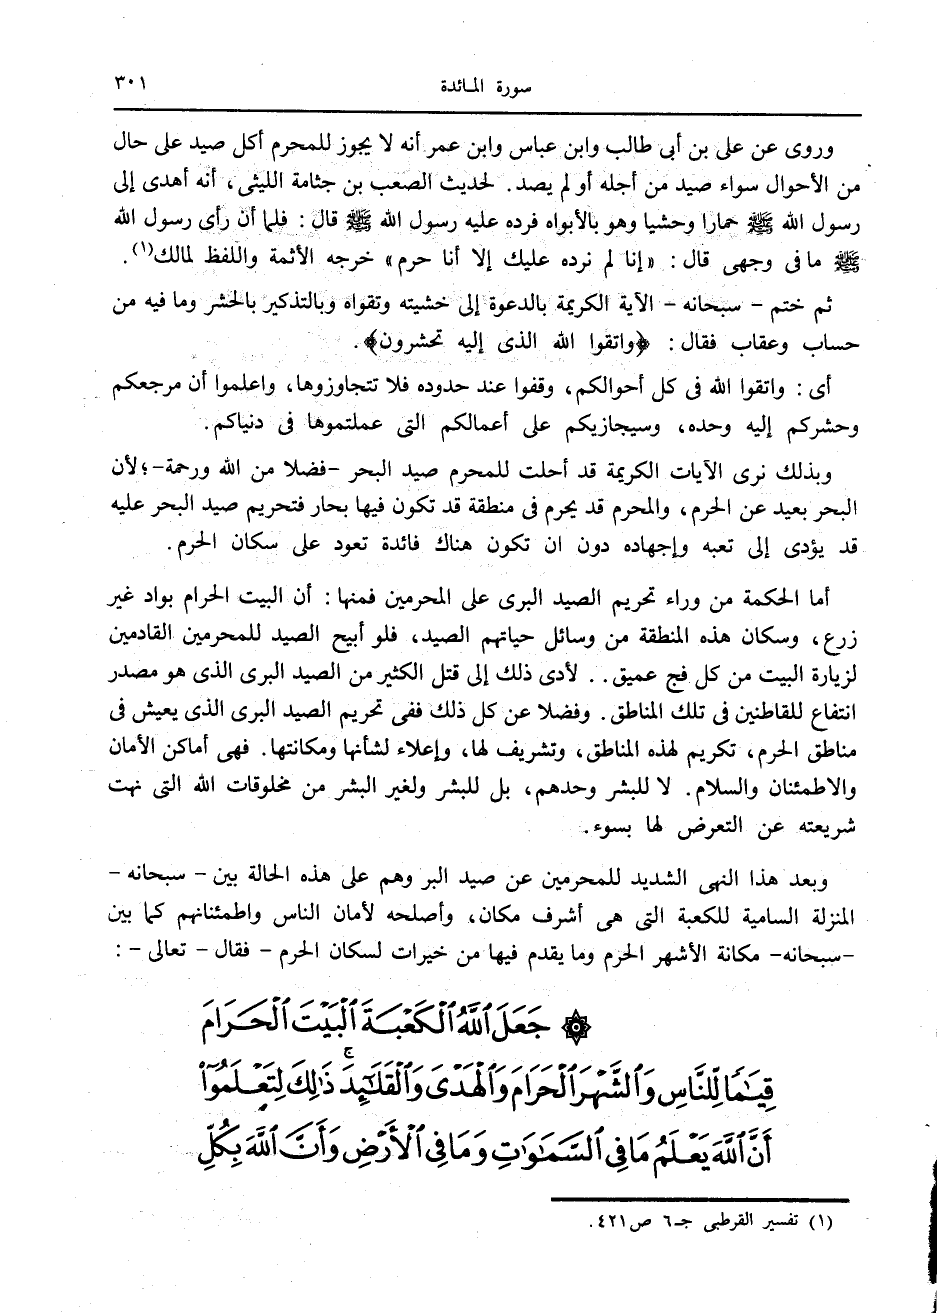 سورة المائدة ٣٠١
وروى عن على بن أبى طالب وابن عباس وابن عمر أنه لا يجوز للمحرم أكل صيد على حال
من الأحوال سواء صيد من أجله أو لم يصد. لحديث الصعب بن جثامة الليثى، أنه أهدى إلى
رسول الله ﷺ حمارا وحشيا وهو بالأبواه فرده عليه رسول الله ﷺ قال: فلما أن رأى رسول الله
ﷺ ما فى وجهى قال: «إنا لم نرده عليك إلا أنا حرم» خرجه الأئمة واللفظ لمالك(١).
ثم ختم - سبحانه - الآية الكريمة بالدعوة إلى خشيته وتقواه وبالتذكير بالحشر وما فيه من
حساب وعقاب فقال: ﴿واتقوا الله الذى إليه تحشرون﴾.
أى: واتقوا الله فى كل أحوالكم، وقفوا عند حدوده فلا تتجاوزوها، واعلموا أن مرجعكم
وحشركم إليه وحده، وسيجازيكم على أعمالكم التى عملتموها فى دنياكم.
وبذلك نرى الآيات الكريمة قد أحلت للمحرم صيد البحر -فضلا من الله ورحمة-؛ لأن
البحر بعيد عن الحرم، والمحرم قد يحرم فى منطقة قد تكون فيها بحار فتحريم صيد البحر عليه
قد يؤدى إلى تعبه وإجهاده دون ان تكون هناك فائدة تعود على سكان الحرم.
أما الحكمة من وراء تحريم الصيد البرى على المحرمين فمنها: أن البيت الحرام بواد غير
زرع، وسكان هذه المنطقة من وسائل حياتهم الصيد، فلو أبيح الصيد للمحرمين القادمين
لزيارة البيت من كل فج عميق.. لأدى ذلك إلى قتل الكثير من الصيد البرى الذى هو مصدر
انتفاع للقاطنين فى تلك المناطق. وفضلا عن كل ذلك ففى تحريم الصيد البرى الذى يعيش فى
مناطق الحرم، تكريم لهذه المناطق، وتشريف لها، وإعلاء لشأنها ومكانتها. فهى أماكن الأمان
والاطمئنان والسلام. لا للبشر وحدهم، بل للبشر ولغير البشر من مخلوقات الله التى نهت
شريعته عن التعرض لها بسوء.
وبعد هذا النهى الشديد للمحرمين عن صيد البر وهم على هذه الحالة بين - سبحانه -
المنزلة السامية للكعبة التى هى أشرف مكان، وأصلحه لأمان الناس واطمئنانهم كما بين
-سبحانه- مكانة الأشهر الحرم وما يقدم فيها من خيرات لسكان الحرم - فقال - تعالى -:
۞ جَعَلَ ٱللَّهُ ٱلْكَعْبَةَ ٱلْبَيْتَ ٱلْحَرَامَ
قِيَٰمًا لِّلنَّاسِ وَٱلشَّهْرَ ٱلْحَرَامَ وَٱلْهَدْىَ وَٱلْقَلَٰٓئِدَ ۚ ذَٰلِكَ لِتَعْلَمُوٓا۟
أَنَّ ٱللَّهَ يَعْلَمُ مَا فِى ٱلسَّمَٰوَٰتِ وَمَا فِى ٱلْأَرْضِ وَأَنَّ ٱللَّهَ بِكُلِّ
(١) تفسير القرطبى جـ ٦ ص ٤٢١.